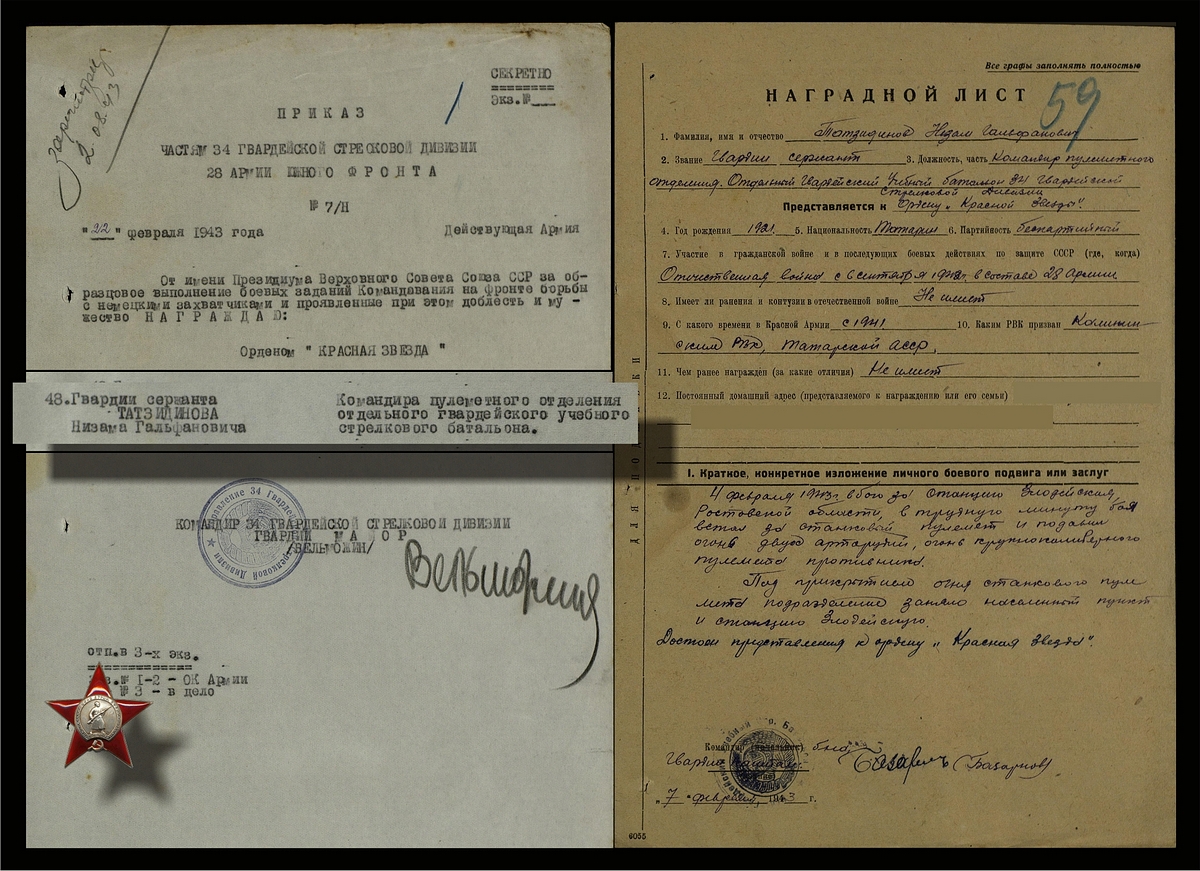 зарегистрир.
2.08.43
СЕКРЕТНО
Экз.№
П Р И К А З
ЧАСТЯМ 34 ГВАРДЕЙСКОЙ СТРЕСКОВОЙ ДИВИЗИИ
28 АРМИИ ЮЖНОГО Ф Р О Н Т А
№ 7/Н
"22" февраля 1943 года Действующая Армия
От имени Президиума Верховного Совета Союза ССР за об-
разцовое выполнение боевых заданий Командавания на фронте борьбы
с немецкими захватчиками и проявленные при этом доблесть и му -
жество Н А Г Р А Ж Д А Ю:
Орденом " КРАСНАЯ ЗВЕЗДА "
48.Гвардии сержанта Командира пулеметного отделения
ТАТЗИДИНОВА отдельного гвардейского учебного
Низама Гальфановича стрелкового батальона.
КОМАНДИР 34 ГВАРДЕЙСКОЙ СТРЕЛКОВОЙ ДИВИЗИИ
ГВАРДИИ М А Й О Р
/ВЕЛЬМОЖИН/
Управление 34 Гвардейской Стрелковой Дивизии
отп.в 3-х экз.
№ 1-2 - ОК Армии
№ 3 - в дело
Все графы заполнять полностью
НАГРАДНОЙ ЛИСТ
59
1. Фамилия, имя и отчество Татзидинов Незам Гальфанович
2. Звание Гвардии сержант 3. Должность, часть Командир пулеметного
отделения. Отдельный Гвардейский Учебный батальон 34 Гвардейской
Стрелковой Дивизии
Представляется к Ордену „Красной Звезды".
4. Год рождения 1921. 5. Национальность Татарин 6. Партийность беспартийный
7. Участие в гражданской войне и в последующих боевых действиях по защите СССР (где, когда)
Отечественная война с 6 сентября 1942г. в составе 28 Армии
8. Имеет ли ранения и контузии в отечественной войне Не имеет
9. С какого времени в Красной Армии с 1941 10. Каким РВК призван Калинин-
ским РВК, Татарской АССР.
11. Чем ранее награжден (за какие отличия) Не имеет
12. Постоянный домашний адрес (представляемого к награждению или его семьи)
ДЛЯ ПОДШИВКИ
I. Краткое, конкретное изложение личного боевого подвига или заслуг
4 февраля 1943г. в бою за станцию Злодейская,
Ростовской области, в трудную минуту боя
встал за станковый пулемет и подавил
огонь двух артарудий, огонь крупнокалиберного
пулемета противника.
Под прикрытием огня станкового пуле
мета подразделение заняло населенный пункт
и станцию Злодейскую.
Достоин представления к ордену „Красная Звезда".
Командир (начальник)
Гвардии капитан (Базарнов)
„7" февраля 1943 г.
6055